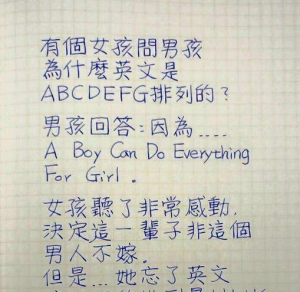 有個女孩問男孩
為什麼英文是
ABCDEFG排列的？
男孩回答：因為....
A Boy Can Do Everything
For Girl.
女孩聽了非常感動,
決定這一輩子非這個
男人不嫁.
但是...她忘了英文